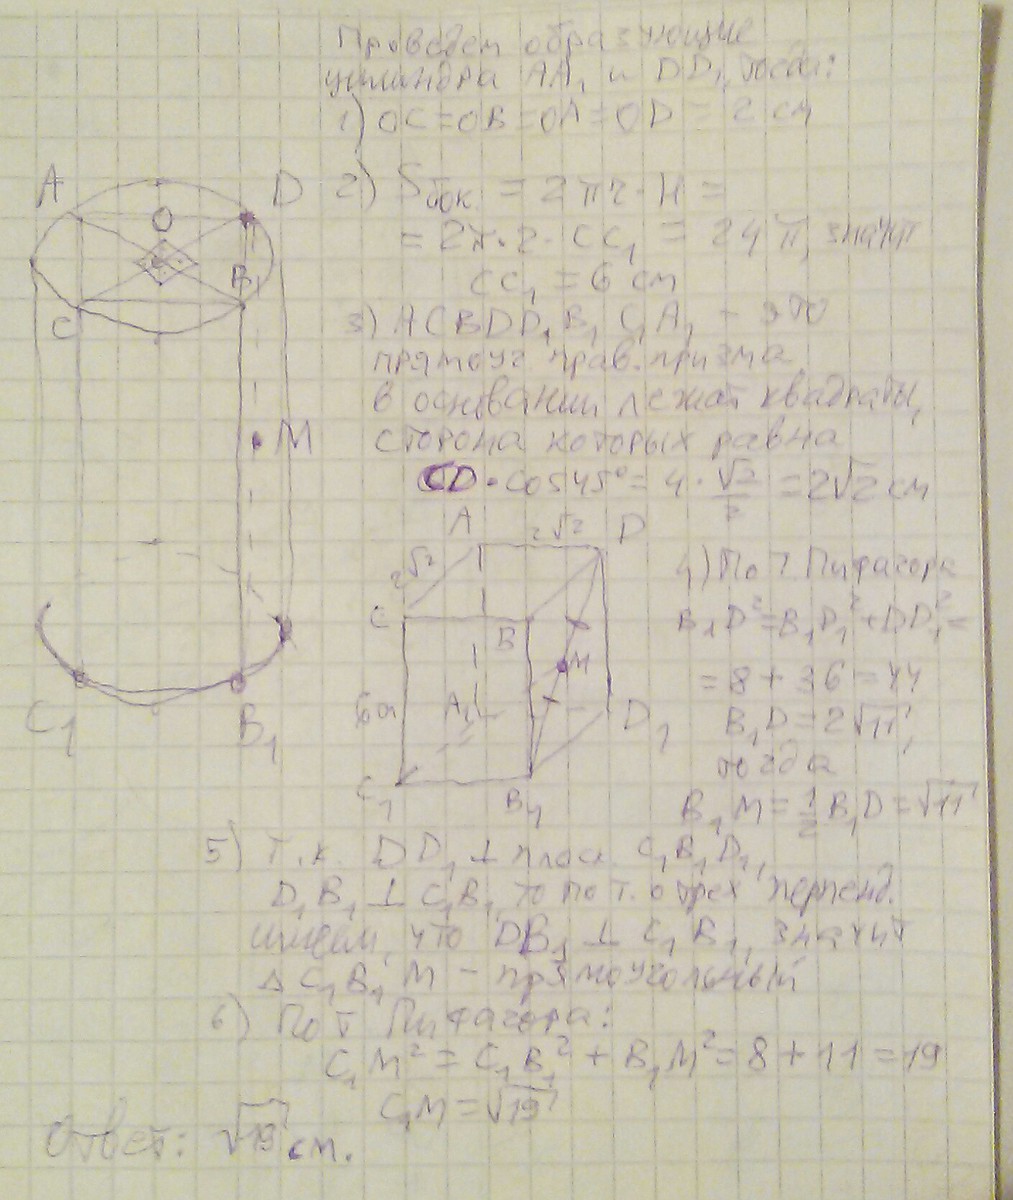 Проведем образующие
цилиндра AA₁ и DD₁, тогда:
1) OC=OB=OA=OD = 2 см
2) Sбок. = 2πr·H =
= 2π·2·CC₁ = 24π, значит
CC₁ = 6 см
3) ACBDD₁B₁C₁A₁ - это
прямоуг прав. призма
в основании лежат квадраты,
сторона которых равна
CD·cos45° = 4·√2/2 = 2√2 см
A D O B C M C₁ B₁
A 2√2 D
2√2
C B M
6 A₁ D₁
C₁ B₁
4) По т Пифагора
B₁D²=B₁D₁²+DD₁²=
= 8 + 36 = 44
B₁D = 2√11,
тогда
B₁M = 1/2 B₁D = √11
5) Т.к. DD₁ ⊥ плоск C₁B₁D₁,
D₁B₁ ⊥ C₁B₁, то по т. о трех перпенд.
имеем, что DB₁ ⊥ C₁B₁, значит
△ C₁B₁M - прямоугольный
6) По т Пифагора:
C₁M² = C₁B₁² + B₁M² = 8 + 11 = 19
C₁M = √19
Ответ: √19 см.